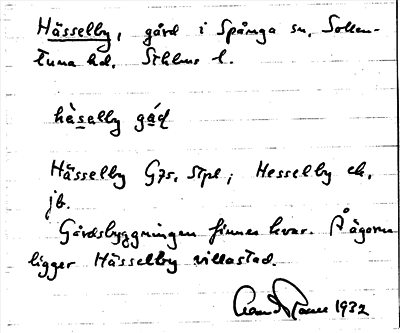 Hässelby, gård i Spånga sn, Sollen-
tuna hd. Sthlms l.
hä̀selby gáḍ
Hässelby G7s, Stpl; Hesselby ek,
jb.
Gårdsbyggningen finnes kvar. På ägorna
ligger Hässelby villastad.
1932